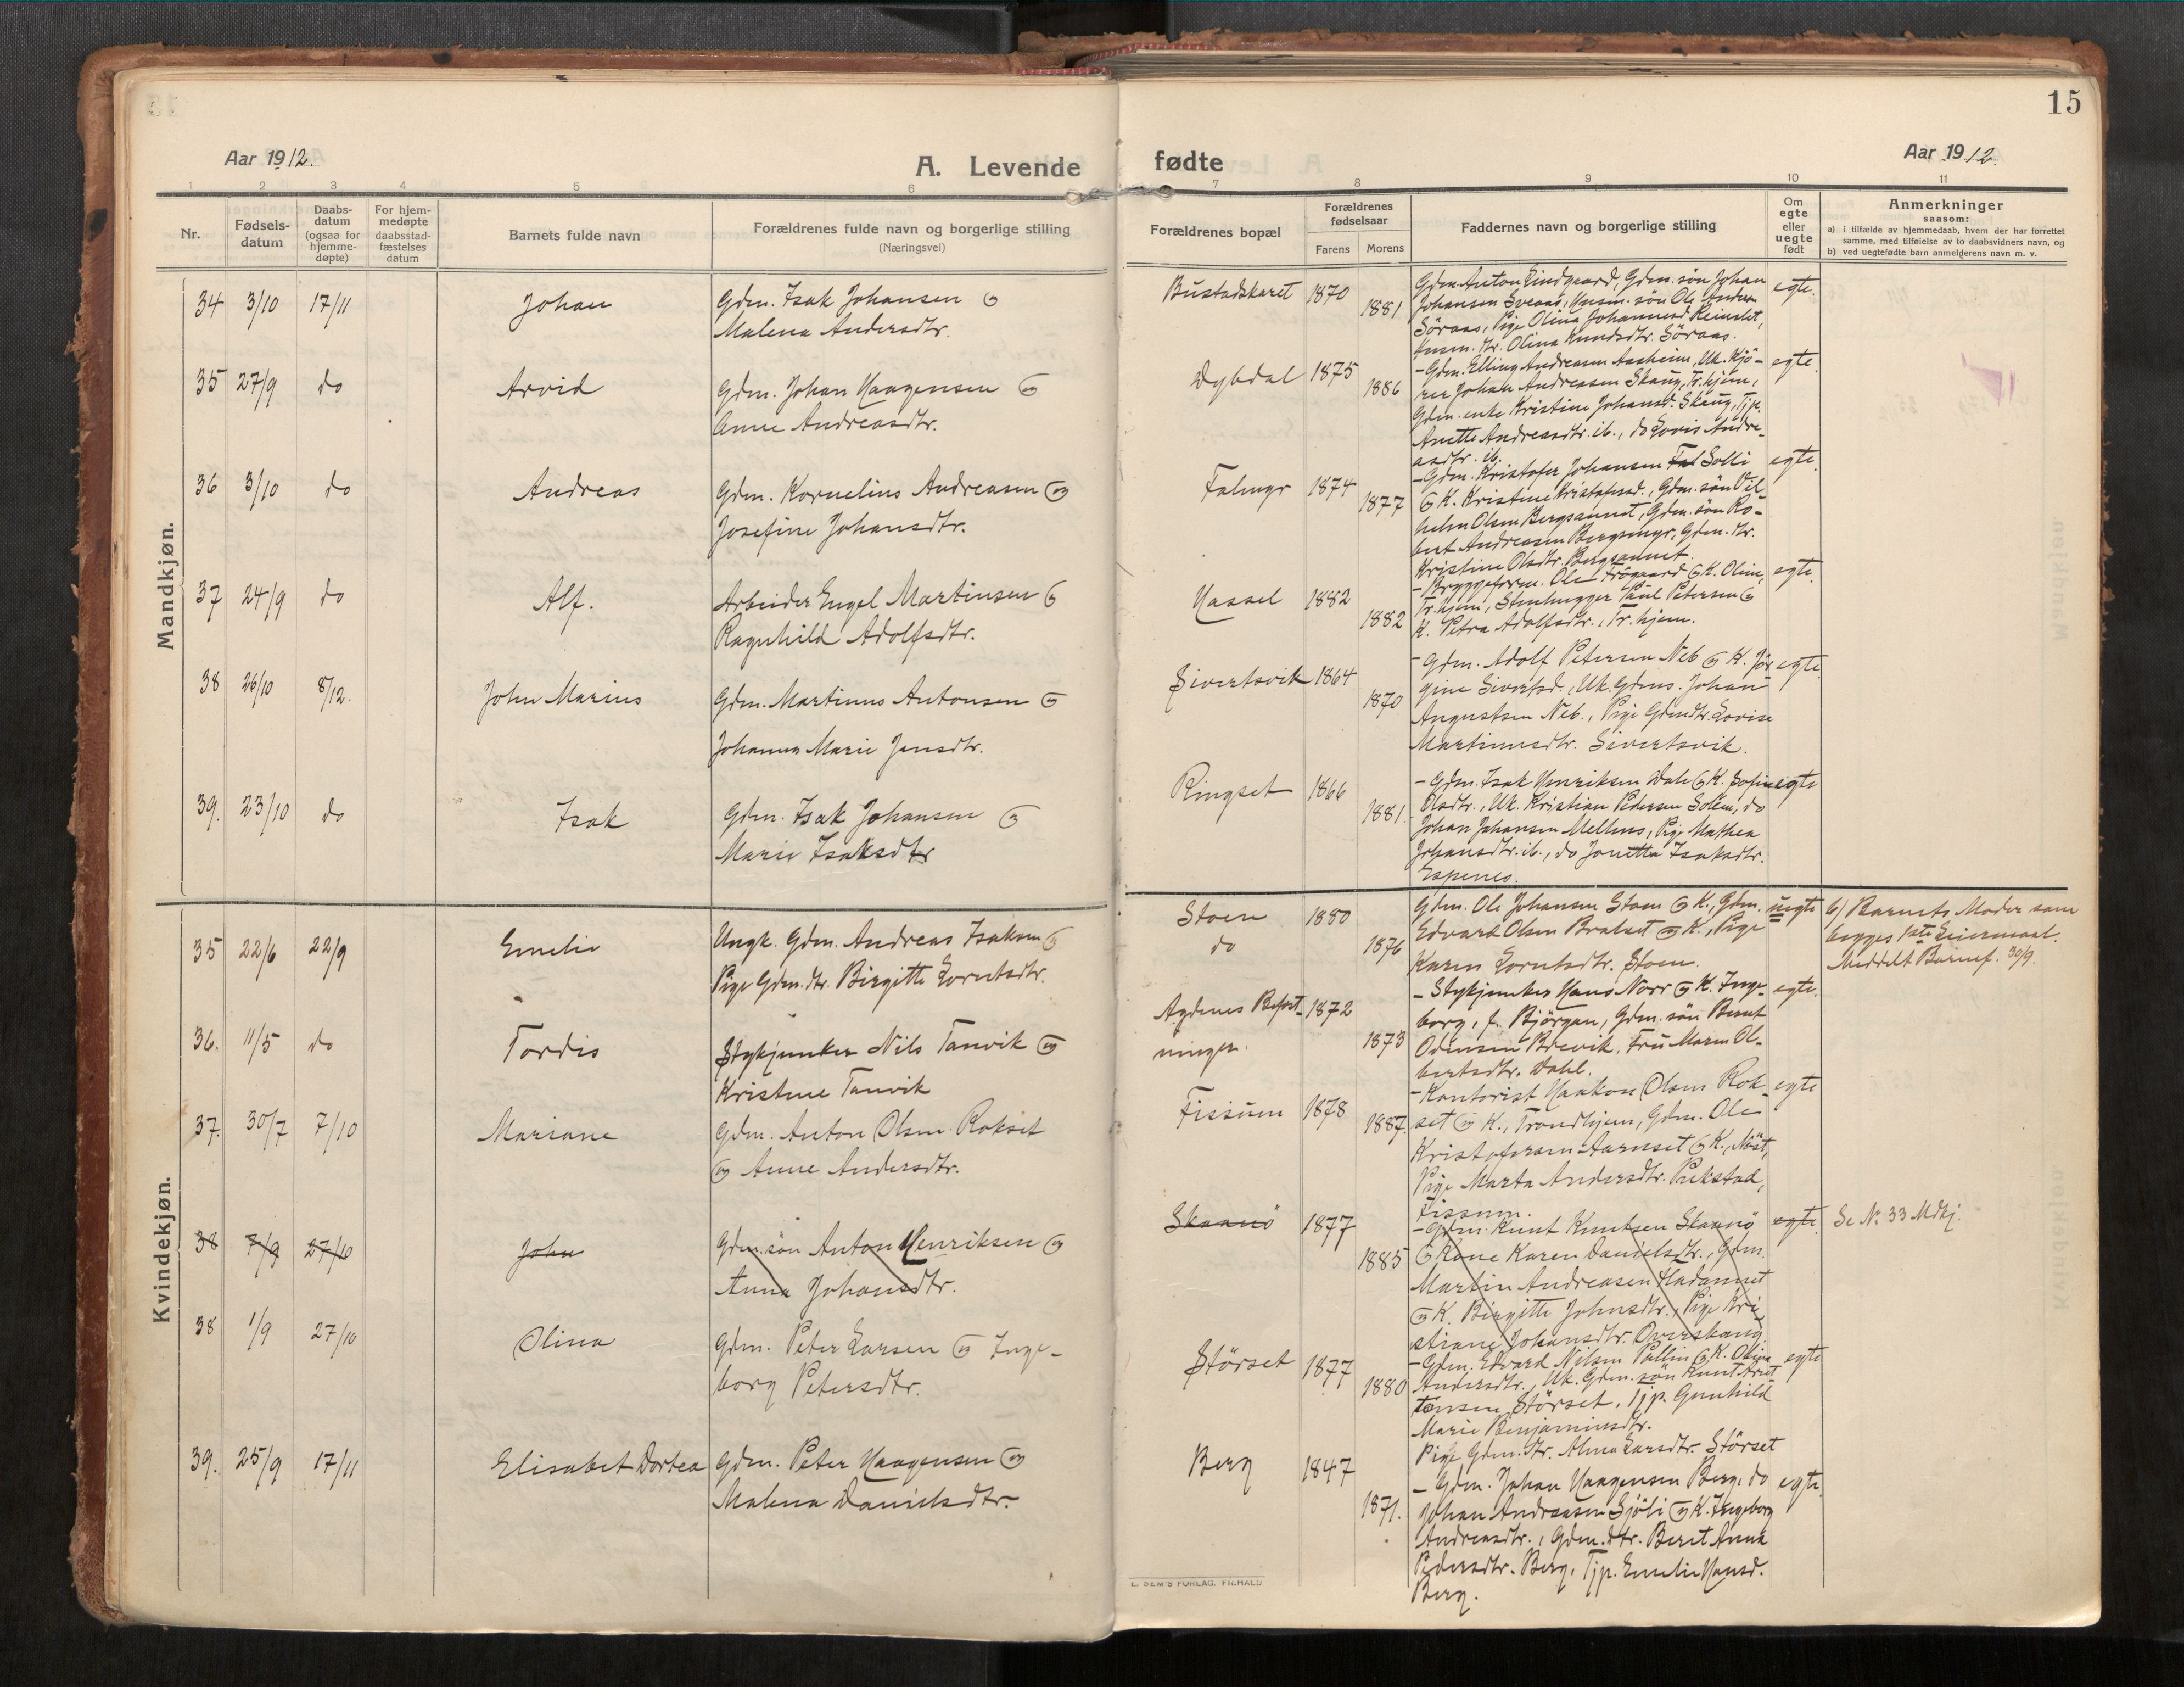 15
Aar 1912.
A. Levende fødte
Aar 1912.
1 2 3 4 5 6 7 8 9 10 11
Nr.
Fødsels-
datum
Daabs-
datum
(ogsaa for
hjemme-
døpte)
For hjem-
medøpte
daabsstad-
fæstelses
datum
Barnets fulde navn
Forældrenes fulde navn og borgerlige stilling
(Næringsvei)
Forældrenes bopæl
Forældrenes
fødselsaar
Farens Morens
Faddernes navn og borgerlige stilling
Om
egte
eller
uegte
født
Anmerkninger
saasom:
a) i tilfælde av hjemmedaab, hvem der har forrettet
samme, med tilføielse av to daabsvidners navn, og
b) ved uegtefødte barn anmelderens navn m. v.
Mandkjøn.
34 3/10 17/11 Johan
Gdm. Isak Johansen og
Malena Andersdtr.
Bustadskaret 1870 1881
Gdm. Anton Lindgaard, Gdm. søn Johan
Johansen Sveaas, Husm. søn Ole Anders
Söraas, Pige Olina Johannesd. Reinslet,
Husm. dtr. Olina Knudsdtr. Söraas.
egte.
35 27/9 do Arvid
Gdm. Johan Haagensen og
Anne Andreasdtr.
Dybdal 1875 1886
- Gdm. Elling Andreasen Aasheim, Uk. Kjö-
rer Johan Andreasen Skaug, Tr.hjem,
Gdm. enke Kristine Johansd. Skaug, Tjp.
Anette Andreasdtr. ib., do Lovis Andre-
asdtr. ib.
egte.
36 3/10 do Andreas
Gdm. Kornelius Andreasen og
Josefine Johansdtr.
Falmyr 1874 1877
- Gdm. Kristofer Johansen Fal Solli
og K. Kristine Kristofersd., Gdm. søn Vil
helm Olsen Bergsaunet, Gdm. søn Ro-
bert Andreasen Bergsmyr, Gdm. dtr.
Kristine Olsdtr. Bergsaunet.
egte.
37 24/9 do Alf.
Arbeider Engel Martinsen og
Ragnhild Adolfsdtr.
Hassel 1882 1882
- Bryggeform. Ole Frögaard og K. Oline,
Tr.hjem, Stenhugger Paul Petersen og
K. Petra Adolfsdtr., Tr. hjem.
egte.
38 26/10 8/12. John Marius
Gdm. Martinus Antonsen og
Johanna Marie Jensdtr.
Sivertsvik 1864 1870
- Gdm. Adolf Petersen Neb og K. Jör
gine Sivertsd., Uk. Gdms. Johan
Augustsen Neb., Pige Gdmdtr. Lovise
Martinusdtr. Sivertsvik.
egte.
39. 23/10 do Isak
Gdm. Isak Johansen og
Marie Isaksdtr
Ringset 1866 1881.
- Gdm. Isak Henriksen Dale og K. Sofie
Olsdtr., Uk. Kristian Pedersen Solem, do
Johan Johansen Mellnes, Pige Mathea
Johansdtr. ib., do Jonetta Isaksdtr.
Espenes.
egte
Kvindekjøn.
35 22/6 22/9 Emelie
Ungk. Gdm. Andreas Isaksen og
Pige Gdm.dtr. Birgitte Lorntsdtr.
Stoen 1880
do 1876
Gdm. Ole Johansen Stoen og K., Gdm.
Edvard Olsen Bratset og K., Pige
Karen Lorntsdtr. Stoen.
uegte
b) Barnets Moder som
begges 1ste Leiermaal.
Meddelt Barnef. 30/9.
36. 11/5 do Tordis
Stykjunker Nils Tanvik og
Kristine Tanvik
Agdenes Befæst-
ninger. 1872 1873
- Stykjunker Hans Norr og K. Inge-
borg, f. Björgan, Gdm. søn Bernt
Odinsen Brevik, Fru Maren Ol-
bertsdtr. Dahl.
egte.
37. 30/7 7/10 Mariane
Gdm. Anton Olsen Rokset
og Anne Andersdtr.
Fissum 1878 1887.
- Kontorist Haakon Olsen Rok-
set og K., Trondhjem, Gdm. Ole
Kristofersen Aarnset og K., Möst,
Pige Marta Andersdtr. Pukstad,
Fissum.
egte
38 7/9 27/10 John
Gdm. søn Anton Henriksen og
Anna Johansdtr.
Skaanö 1877 1885
- Gdm. Knut Knutsen Skaanö
og Kone Karen Danielsdtr., Gdm.
Martin Andreasen Hadaunet
og K. Birgitte Johnsdtr., Pige Kri-
stiane Johansdtr. Overskaug.
egte.
Se No. 33 Mdkj.
38 1/9 27/10 Olina
Gdm. Peter Larsen og Inge-
borg Petersdtr.
Störset 1877 1880
- Gdm. Edvard Nilsen Pallin og K. Oline
Andersdtr., Uk. Gdm. søn Knut Arnt
tonsen Störset, Tjp. Gunhild
Marie Benjaminsdtr.
Pige Gdm. dtr. Alma Larsdtr. Störset
egte
39. 25/9 17/11 Elisabet Dortea
Gdm. Peter Haagensen og
Malena Danielsdtr.
Berg 1847 1871.
- Gdm. Johan Haagensen Berg, do
Johan Andreasen Sjöli og K. Ingeborg
Andreasdtr., Gdm. dtr. Beret Anna
Pedersdtr. Berg, Tjp. Emelie Hansd.
Berg.
egte.
E. SEM'S FORLAG, FR.HALD